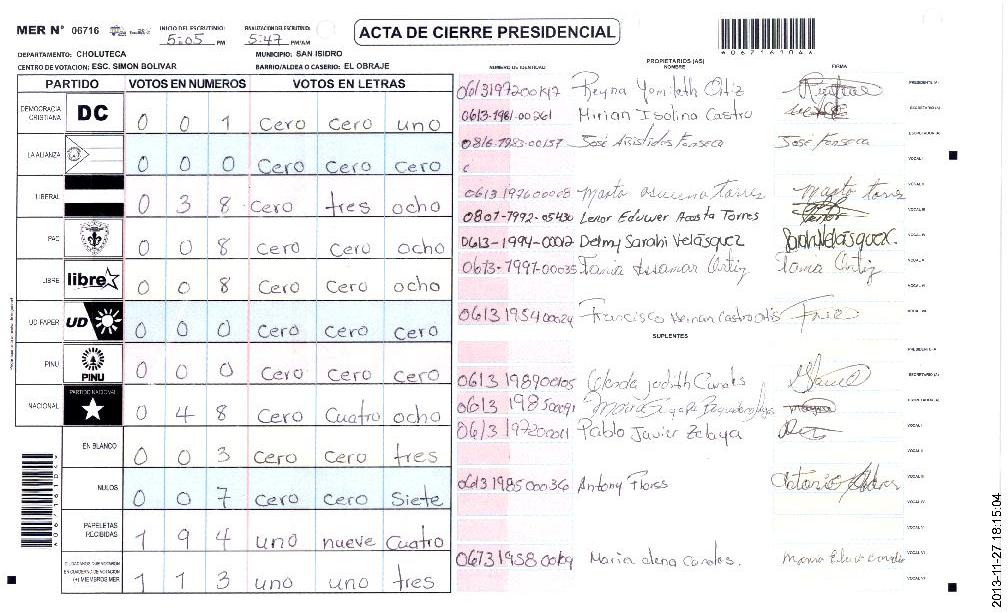 MER Nº 06716
INICIO DEL ESCRUTINIO: 5:05 PM
FINALIZACION DEL ESCRUTINIO: 5:47 PM/AM
ACTA DE CIERRE PRESIDENCIAL
DEPARTAMENTO: CHOLUTECA MUNICIPIO: SAN ISIDRO
CENTRO DE VOTACION: ESC. SIMON BOLIVAR BARRIO/ALDEA O CASERIO: EL OBRAJE
PARTIDO VOTOS EN NUMEROS VOTOS EN LETRAS
DEMOCRACIA CRISTIANA DC 0 0 1 Cero Cero uno
LA ALIANZA 0 0 0 Cero Cero Cero
LIBERAL 0 3 8 Cero tres ocho
PAC 0 0 8 Cero Cero ocho
LIBRE libre 0 0 8 Cero Cero ocho
UD FAPER UD 0 0 0 Cero Cero Cero
PINU PINU 0 0 0 Cero Cero Cero
NACIONAL PARTIDO NACIONAL 0 4 8 Cero Cuatro ocho
EN BLANCO 0 0 3 Cero Cero tres
NULOS 0 0 7 Cero Cero Siete
PAPELETAS RECIBIDAS 1 9 4 uno nueve Cuatro
CIUDADANOS QUE VOTARON EN CUADERNO DE VOTACION (+) MIEMBROS MER 1 1 3 uno uno tres
NUMERO DE IDENTIDAD PROPIETARIOS (AS) NOMBRE FIRMA
Reyna Yamileth Ortiz PRESIDENTE (A)
0613-1981-00261 Mirian Isolina Castro SECRETARIO (A)
0816-1983-00157 José Aristides Fonseca José Fonseca ESCRUTADOR (A)
VOCAL I
0613 1976 00008 Marta asucena Torres Marta torres VOCAL II
0807-1992-05430 Lenor Eduwer Acosta Torres VOCAL III
0613-1994-00012 Delmy Sarahi Velásquez Sarahi Velásquez. VOCAL IV
0613-1997-00035 Tania Ortiz Tania Ortiz VOCAL V
VOCAL VI
0613 1954 00024 Francisco Hernan Castro Ortis VOCAL VII
SUPLENTES
PRESIDENTE (A)
0613 1989 00105 judith Canales SECRETARIO (A)
0613 1985 00091 Maria ESCRUTADOR (A)
0613 1972 00011 Pablo Javier Zelaya VOCAL I
VOCAL II
0613 1985 00036 Antony VOCAL III
VOCAL IV
VOCAL V
0613 1958 Maria elena Canales. Maria VOCAL VI
VOCAL VII
2013-11-27 18:15:04